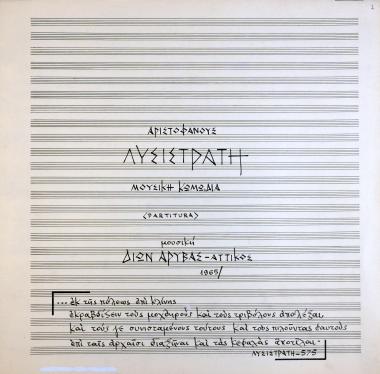 1
ΑΡΙΣΤΟΦΑΝΟΥΣ
ΛΥΣΙΣΤΡΑΤΗ
ΜΟΥΣΙΚΗ ΚΩΜΩΔΙΑ
(PARTITURA)
μουσική
ΔΙΩΝ ΑΡΥΒΑΣ-ΑΤΤΙΚΟΣ
1965/
... ἐκ τῆς πόλεως ἐπὶ κλίνης
ἐκραβδίζειν τοὺς μοχθηροὺς καὶ τοὺς τριβόλους ἀπολέξαι,
καὶ τούς γε συνισταμένους τούτους καὶ τοὺς πιλοῦντας ἑαυτοὺς
ἐπὶ ταῖς ἀρχαῖσι διαξῆναι καὶ τὰς κεφαλὰς ἀποτῖλαι·
ΛΥΣΙΣΤΡΑΤΗ-575